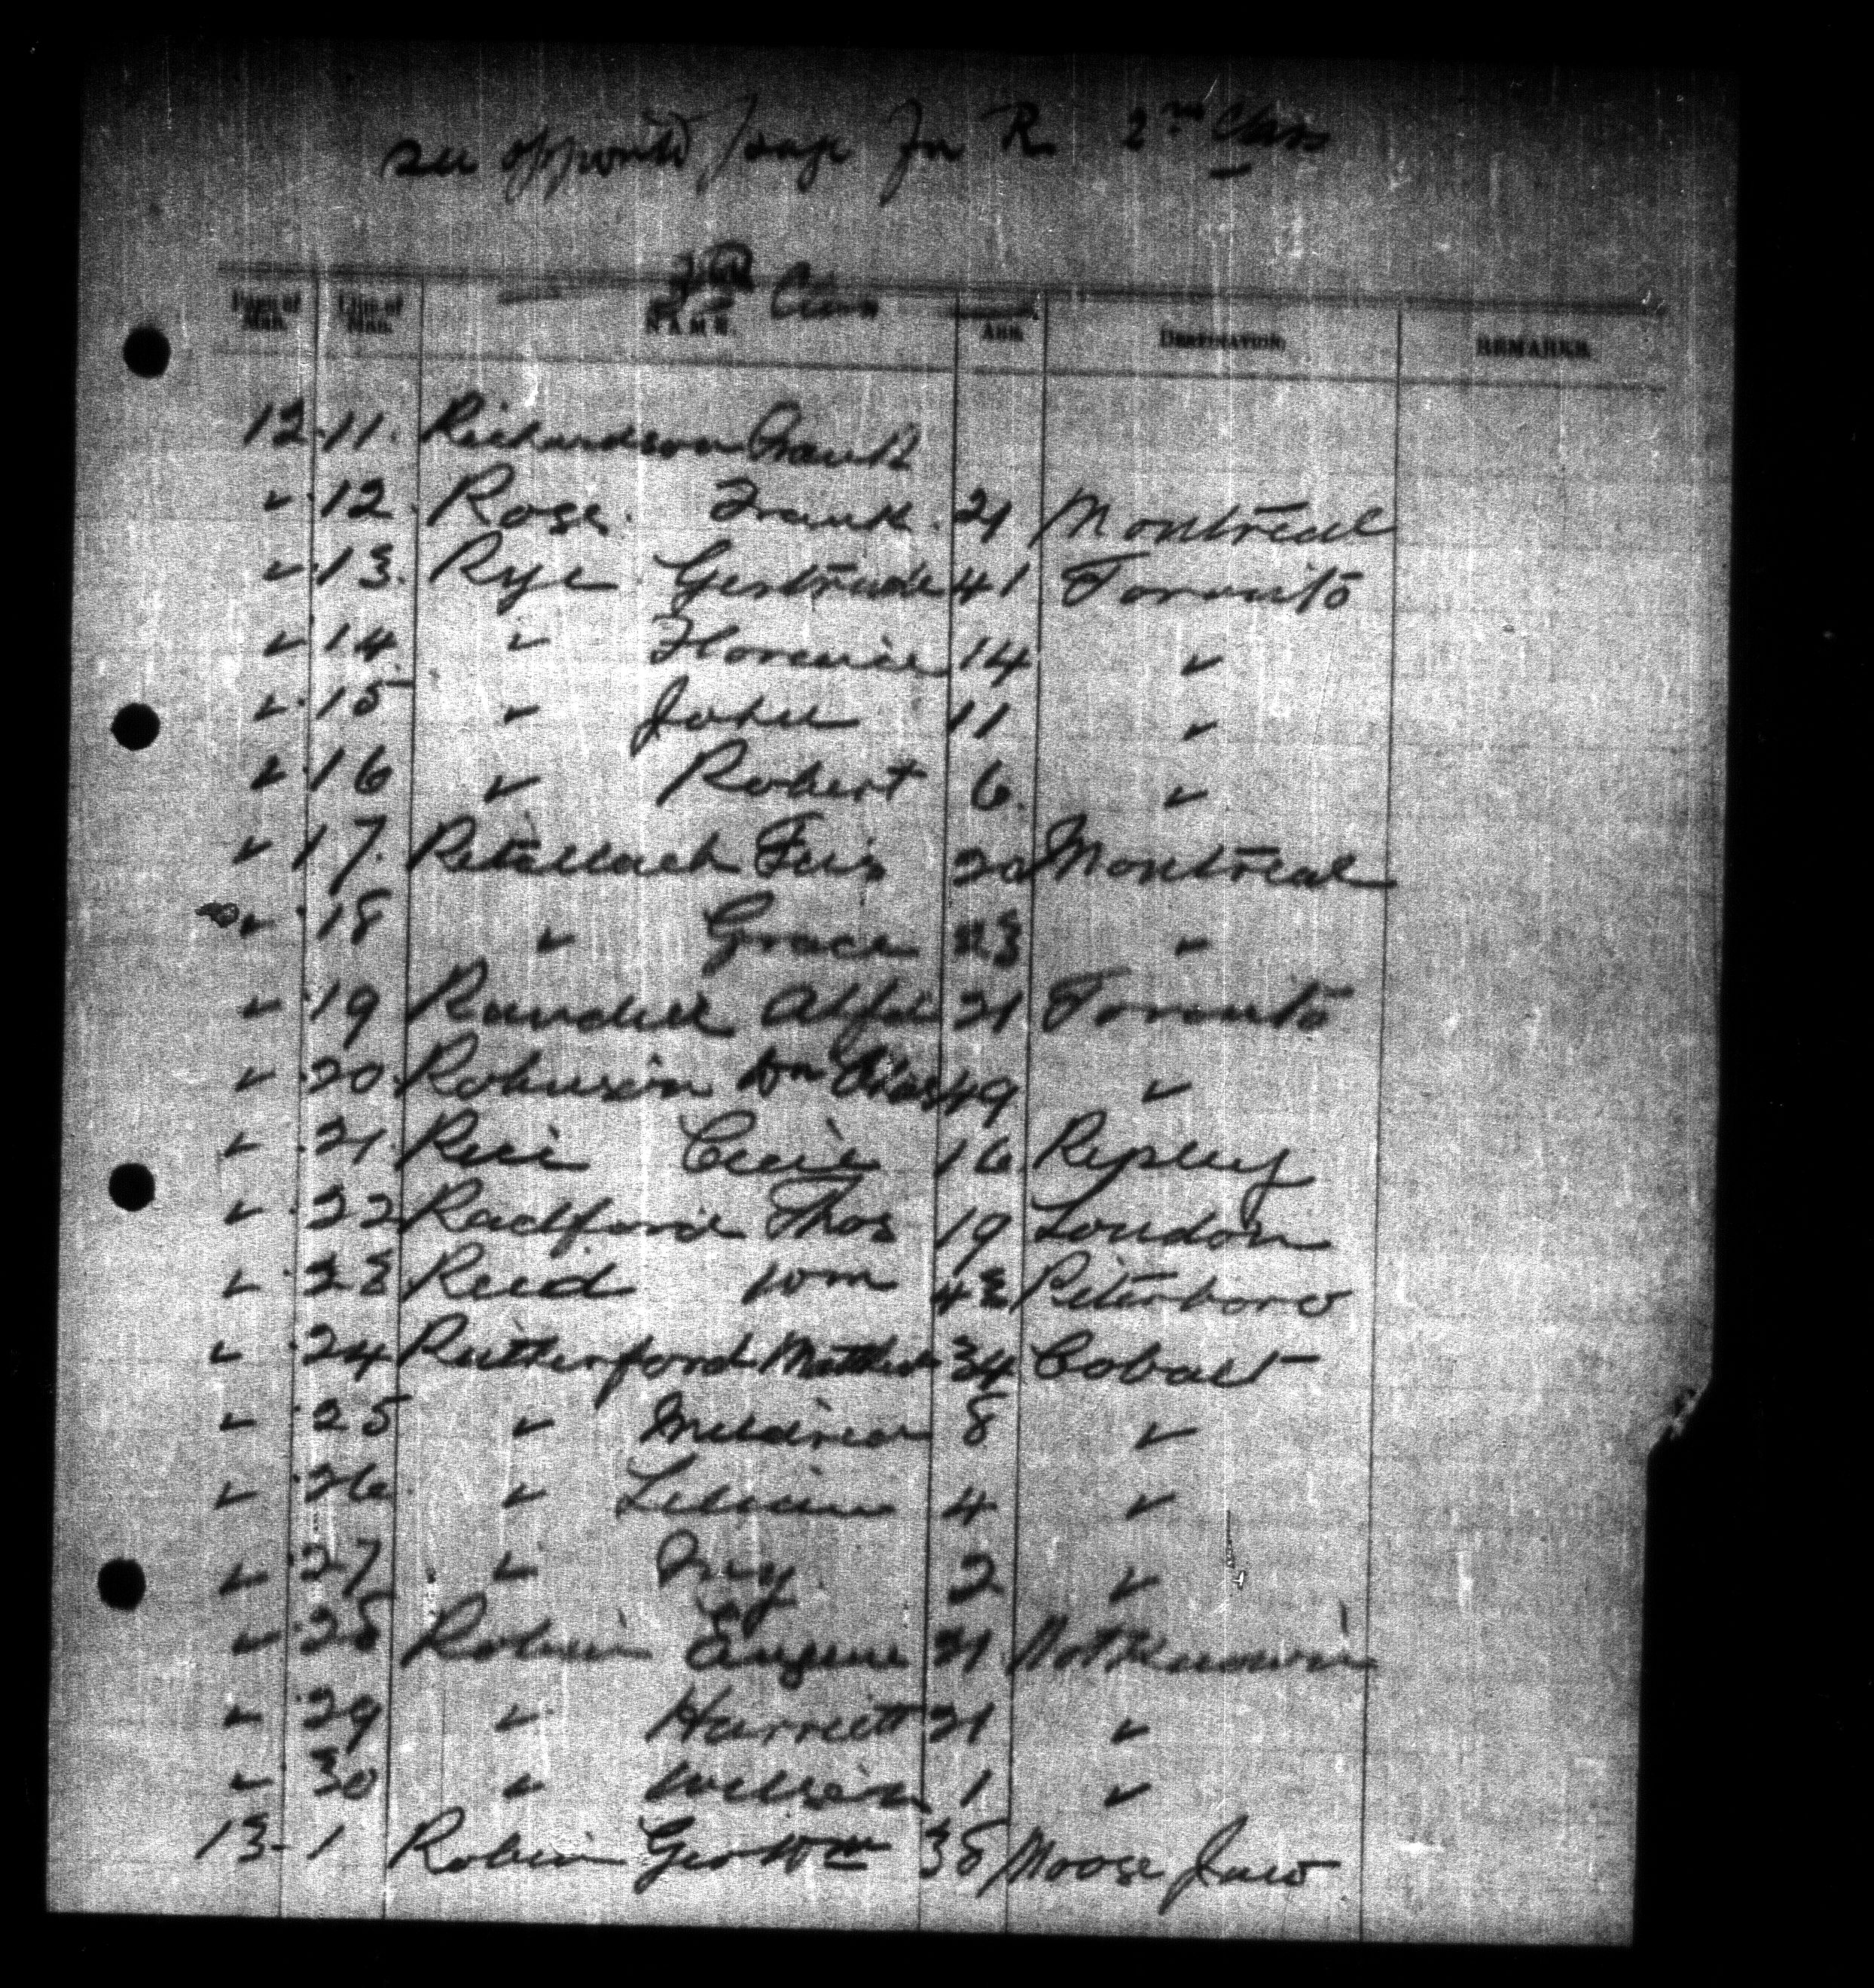 see opposite page for R 2nd Class
Class
Page of Man. Line of Man. NAME. AGE. DESTINATION. REMARKS
12 11. Richardson Frank
✓ 12. Rose Frank. 21 Montreal
✓ 13. Rye Gertrude 41 Toronto
✓ 14 ✓ Florence 14 ✓
✓ 15 ✓ John 11 ✓
✓ 16 ✓ Robert 6. ✓
✓ 17. Retallack 20 Montreal
✓ 18 ✓ Grace 23 ✓
✓ 19 Randell Alfd 21 Toronto
✓ 20. Robinson Wm Chas 49 ✓
✓ 21 Rice Cecil 16 Ripley
✓ 22 Radford Thos 19 London
✓ 23 Reed Wm 43 Peterboro
✓ 24 Rutherford Matthew 34 Cobalt
✓ 25 ✓ Mildred 8 ✓
✓ 26 ✓ Lilian 4 ✓
✓ 27 ✓ Ivy 2 ✓
✓ 28 Robin Eugene 21 Not Known
✓ 29 ✓ Harriett 21 ✓
✓ 30 ✓ 1 ✓
13 - 1 Robin Geo Wm 38 Moose Jaw